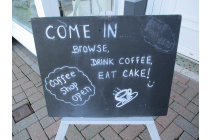 COME IN...
BROWSE,
DRINK COFFEE,
EAT CAKE!
Coffee
Shop
Open